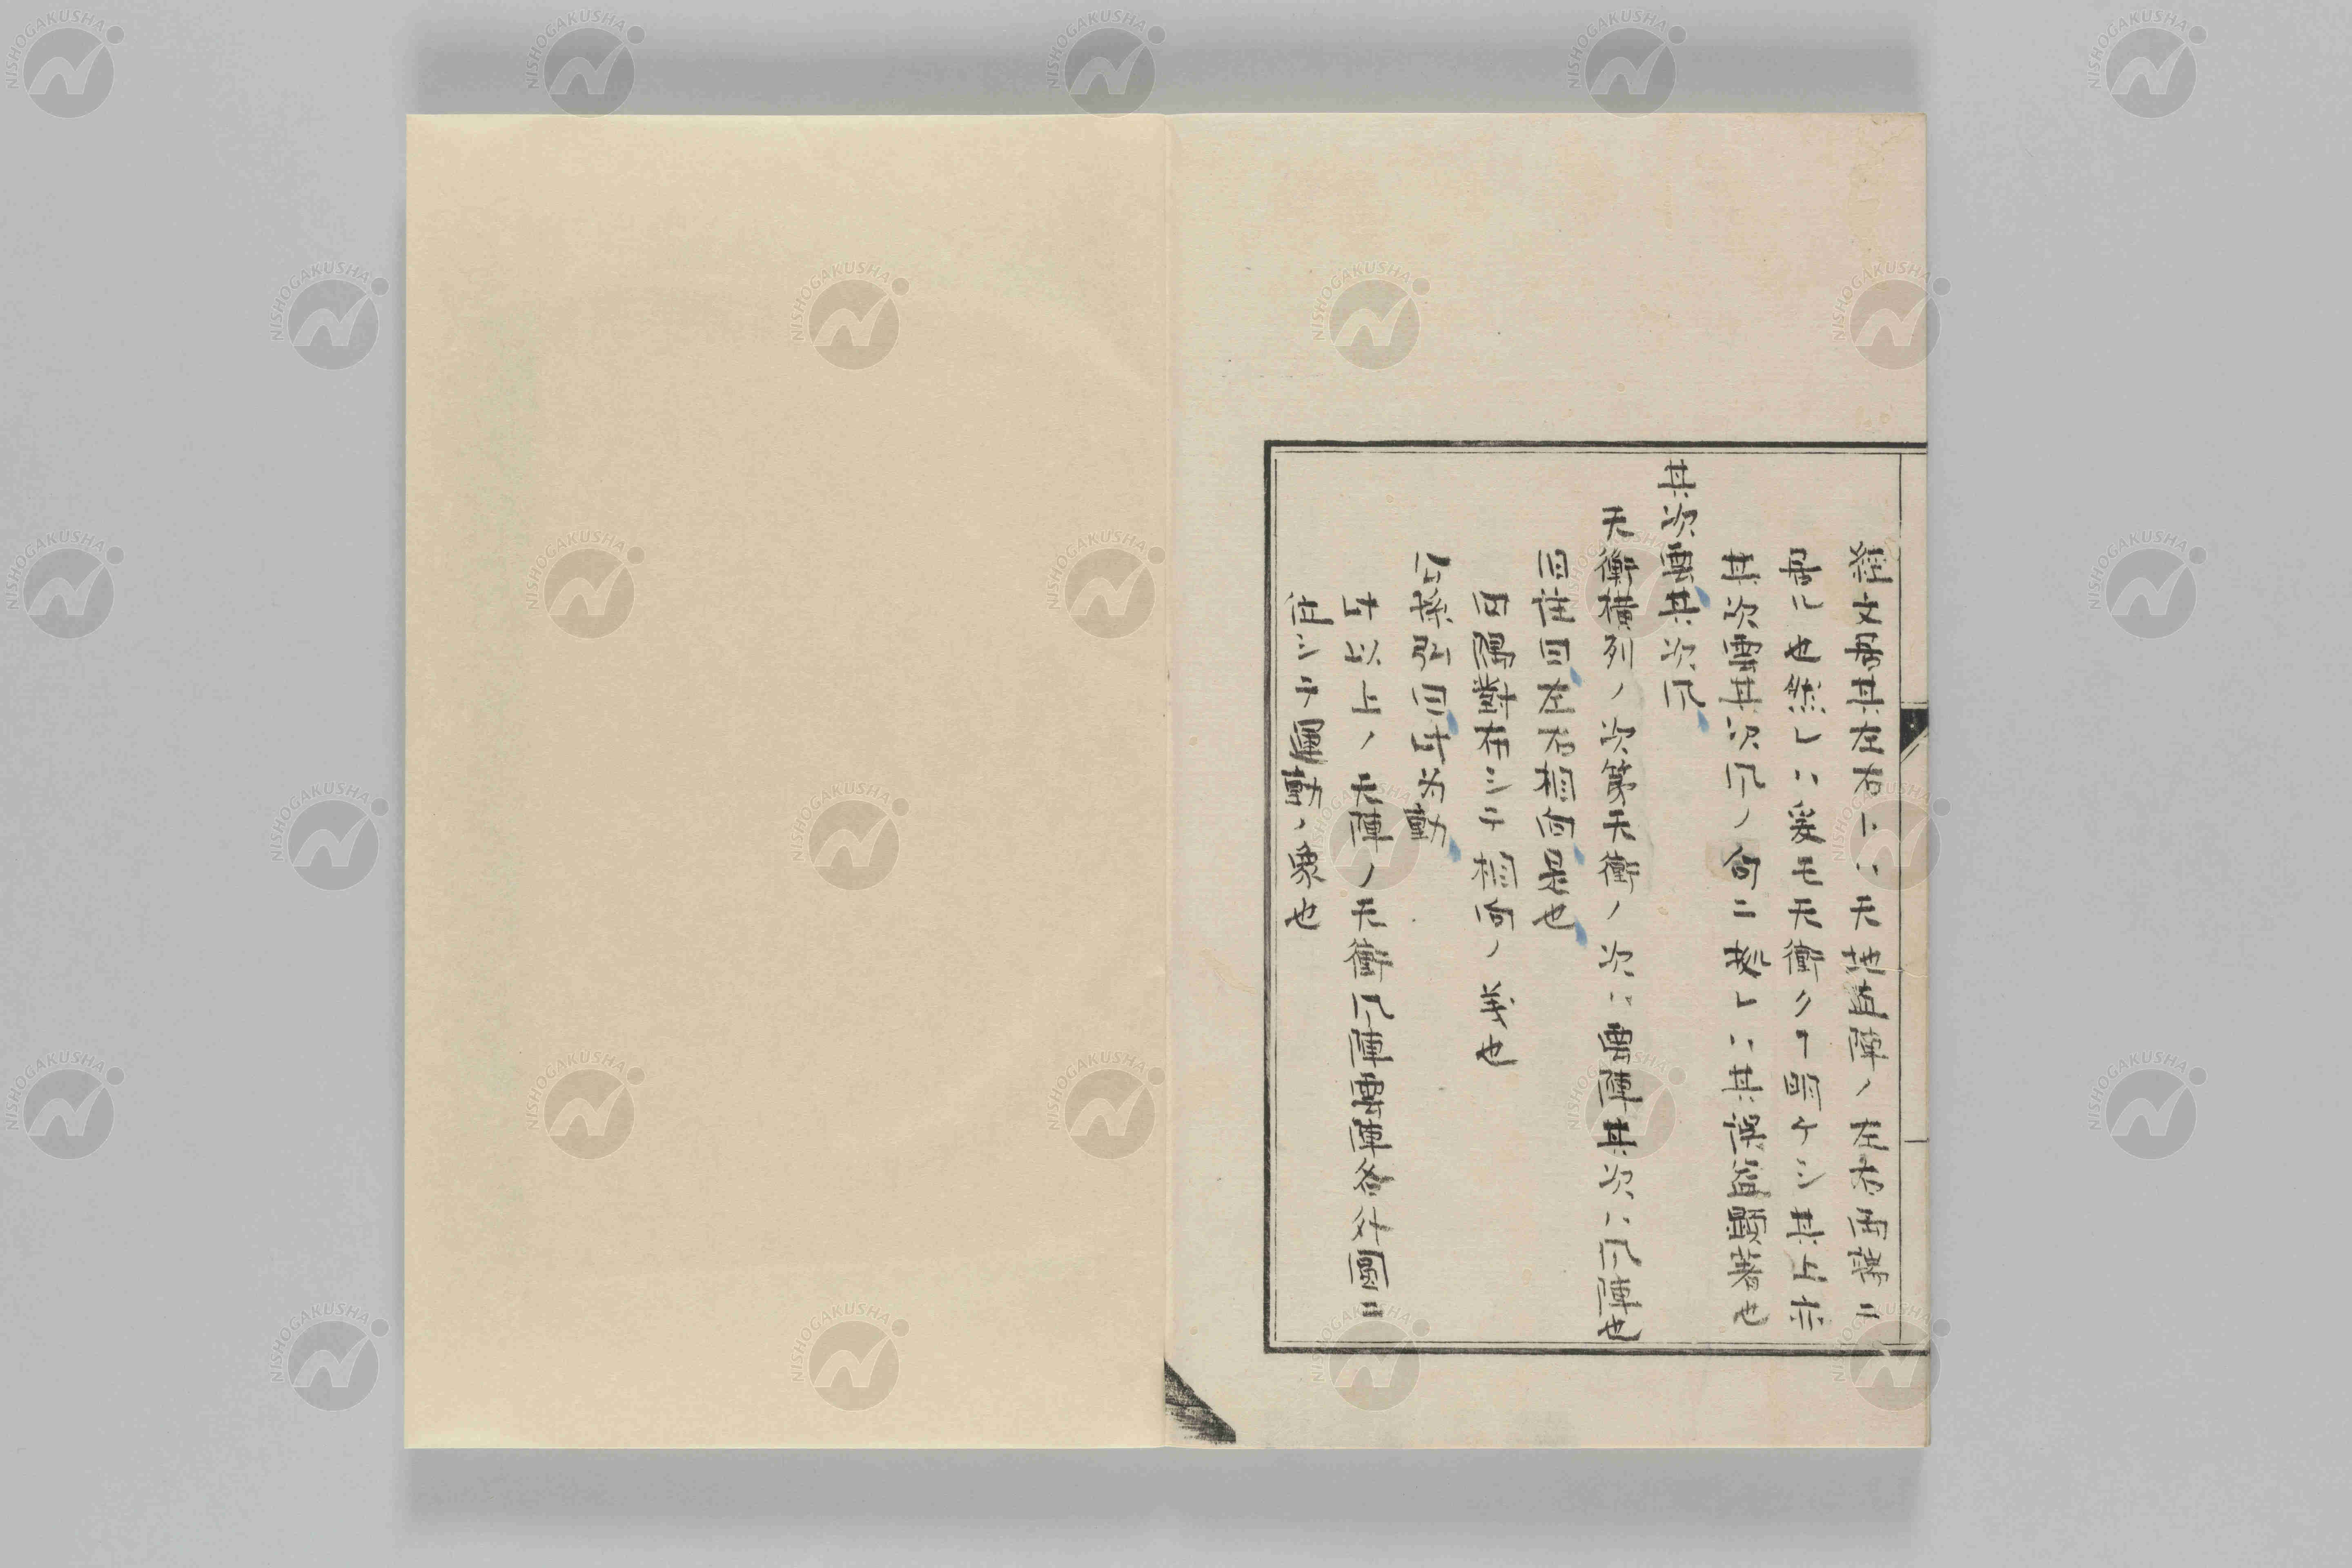 経文居其左右トハ天地前陣ノ左右両傍ニ
居ル也然レハ爰モ天衝タルヿ明ケシ其上亦
其次雲其次風ノ句ニ拠レハ其誤益顕著也
其次雲其次風
天衝横列ノ次第天衝ノ次ハ雲陣其次ハ風陣也
旧注曰左右相向是也
四隅對布シテ相向ノ義也
公孫弘曰此为動
此以上ノ天陣ノ天衝風陣雲陣各外圓ニ
位シテ運動ノ象也
NISHOGAKUSHA